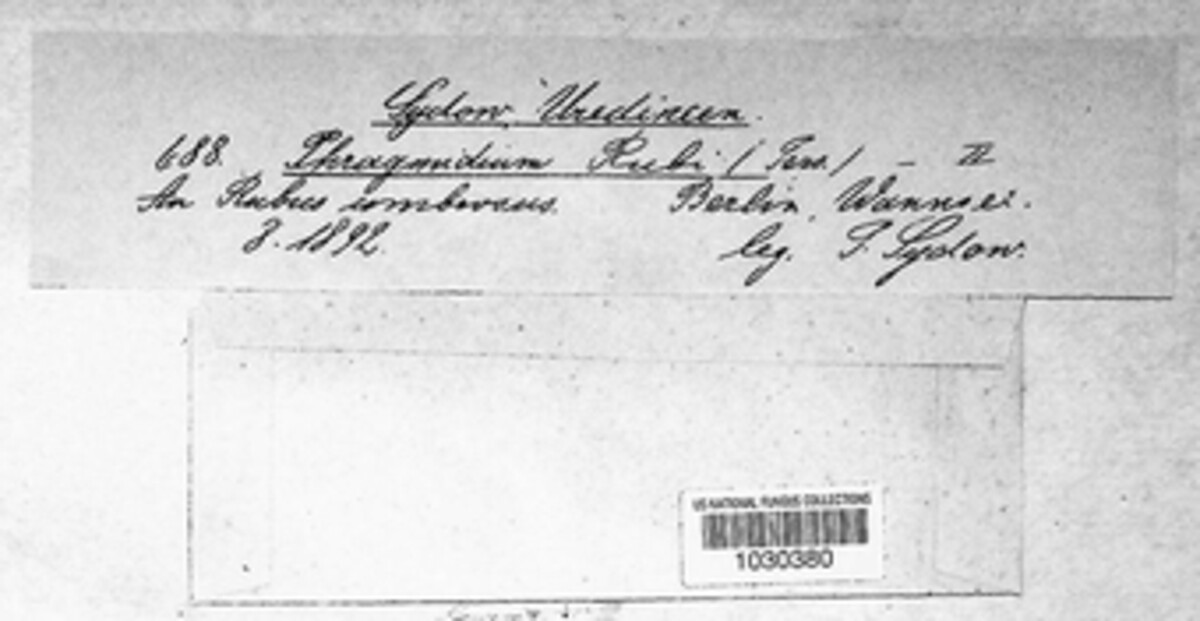 Sydow, Uredineen.
688. Phragmidium Rubi (Pers.) – II
An Rubus umbrosus. Berlin, Wannsee.
8. 1892. leg. P. Sydow.
US NATIONAL FUNGUS COLLECTIONS
1030380